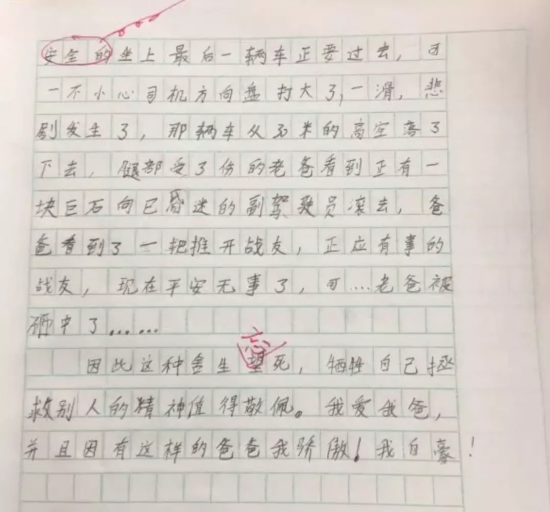 安全的坐上最后一辆车正要过去，可
一不小心司机方向盘打大了，一滑，悲
剧发生了，那辆车从30米的高空落了
下去，腿部受了伤的老爸看到正有一
块巨石向已昏迷的副驾驶员滚去，爸
爸看到了一把推开战友，正应有事的
战友，现在平安无事了，可...老爸被
砸中了……
忘
因此这种舍生望死，牺牲自己拯
救别人的精神值得敬佩。我爱我爸，
并且因有这样的爸爸我骄傲！我自豪！